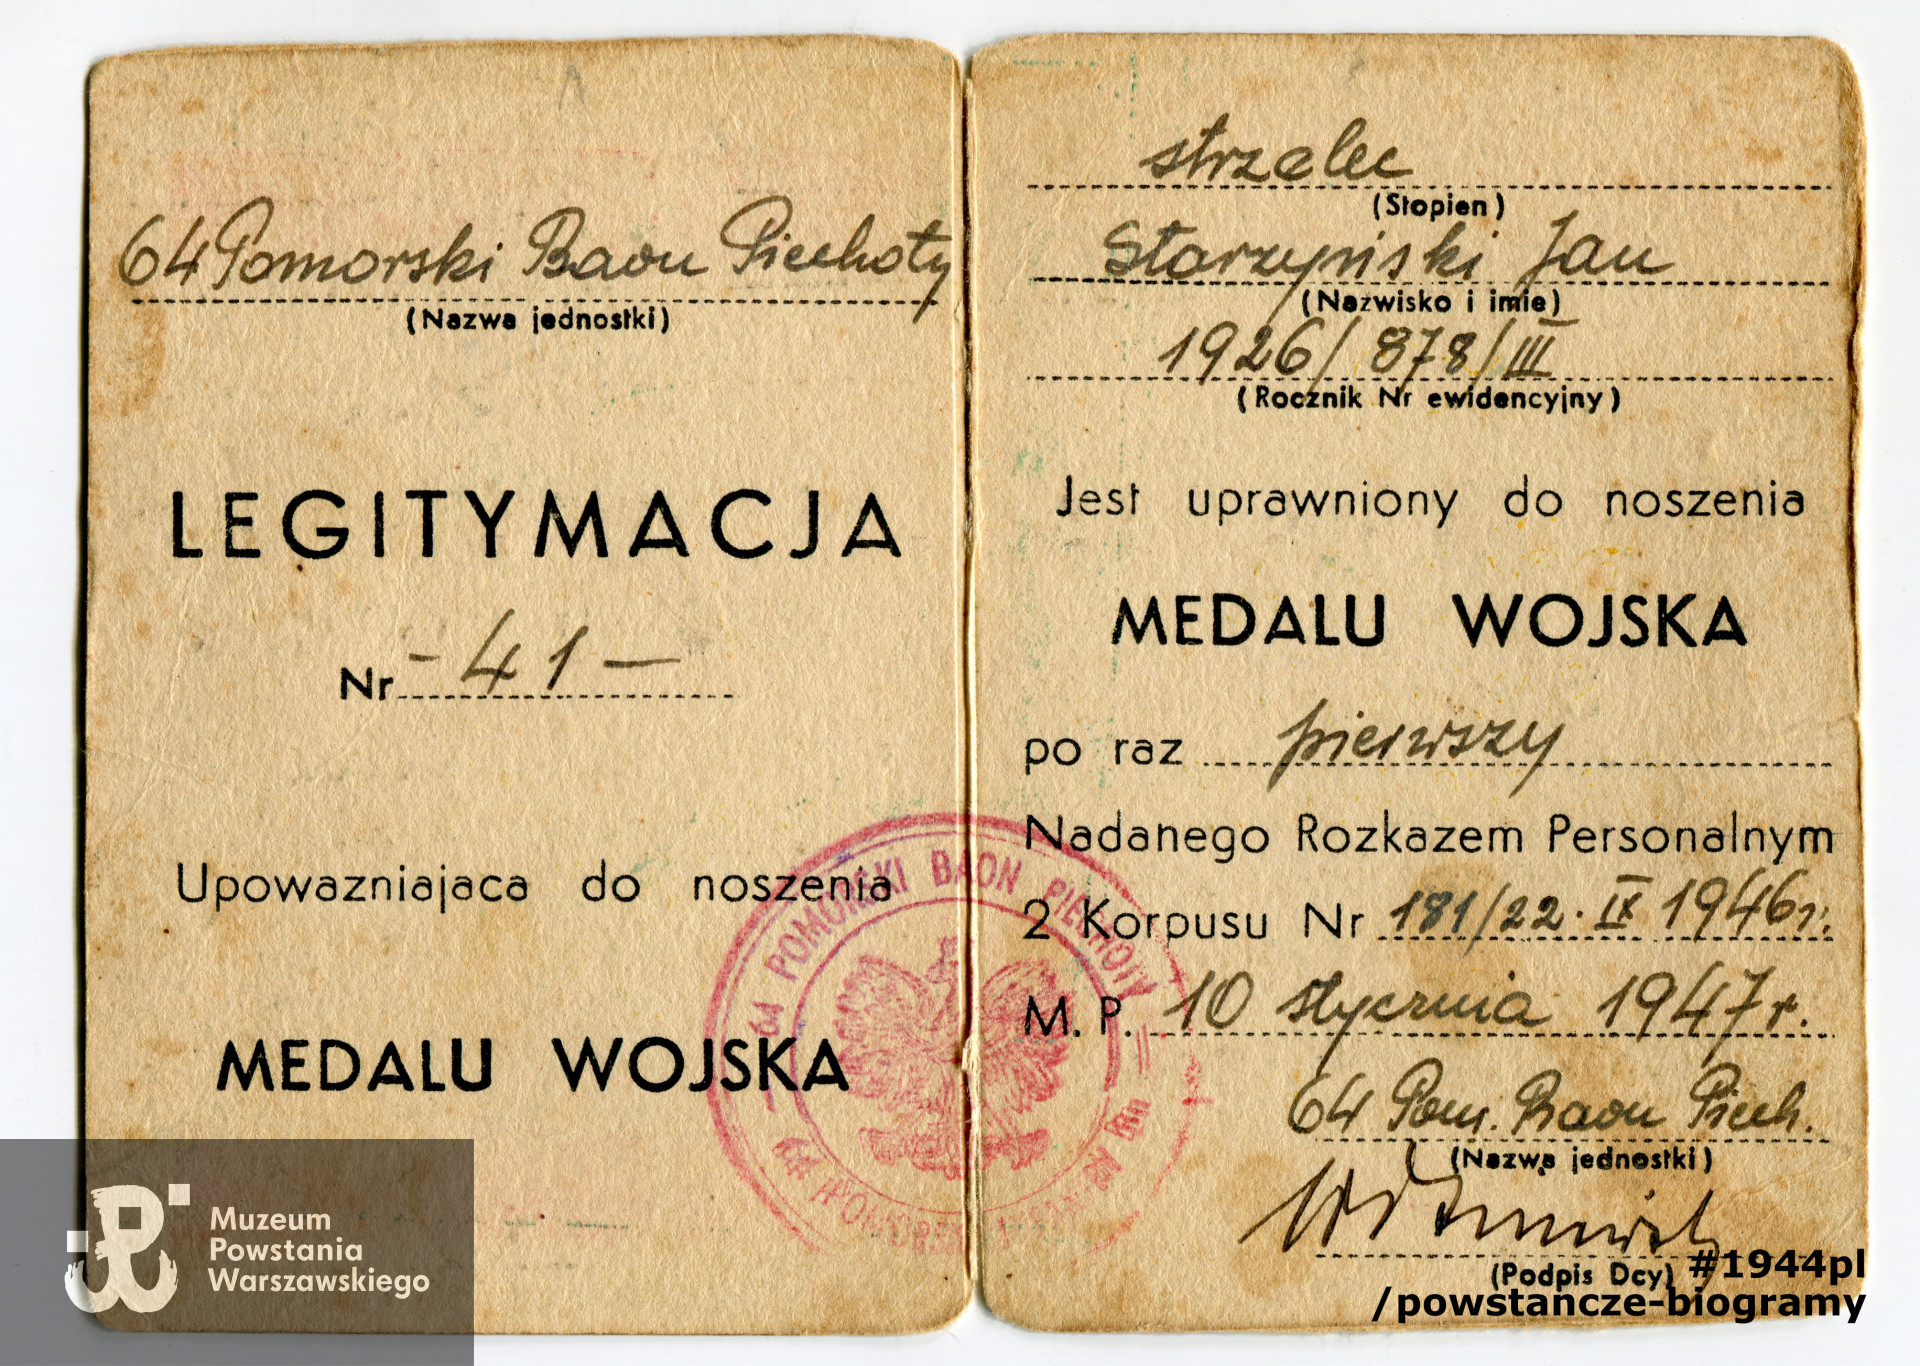 64 Pomorski Baon Piechoty
(Nazwa jednostki)
LEGITYMACJA
Nr - 41 -
Upowazniajaca do noszenia
MEDALU WOJSKA
strzelec
(Stopien)
Starzyński Jan
(Nazwisko i imie)
1926/878/III
(Rocznik Nr ewidencyjny)
Jest uprawniony do noszenia
MEDALU WOJSKA
po raz pierwszy
Nadanego Rozkazem Personalnym
2 Korpusu Nr 181/22.IX 1946r.
M. P. 10 stycznia 1947r.
64 Pom. Baon Piech.
(Nazwa jednostki)
(Podpis Dcy)
64 POMORSKI BAON PIECHOTY
Muzeum
Powstania
Warszawskiego
#1944pl
/powstancze-biogramy